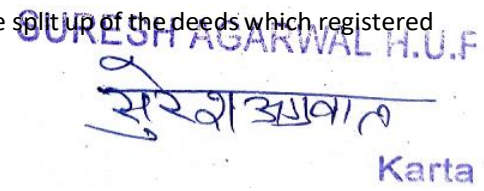 e split up of the deeds which registered
SURESH AGARWAL H.U.F
सुरेश अग्रवाल
Karta